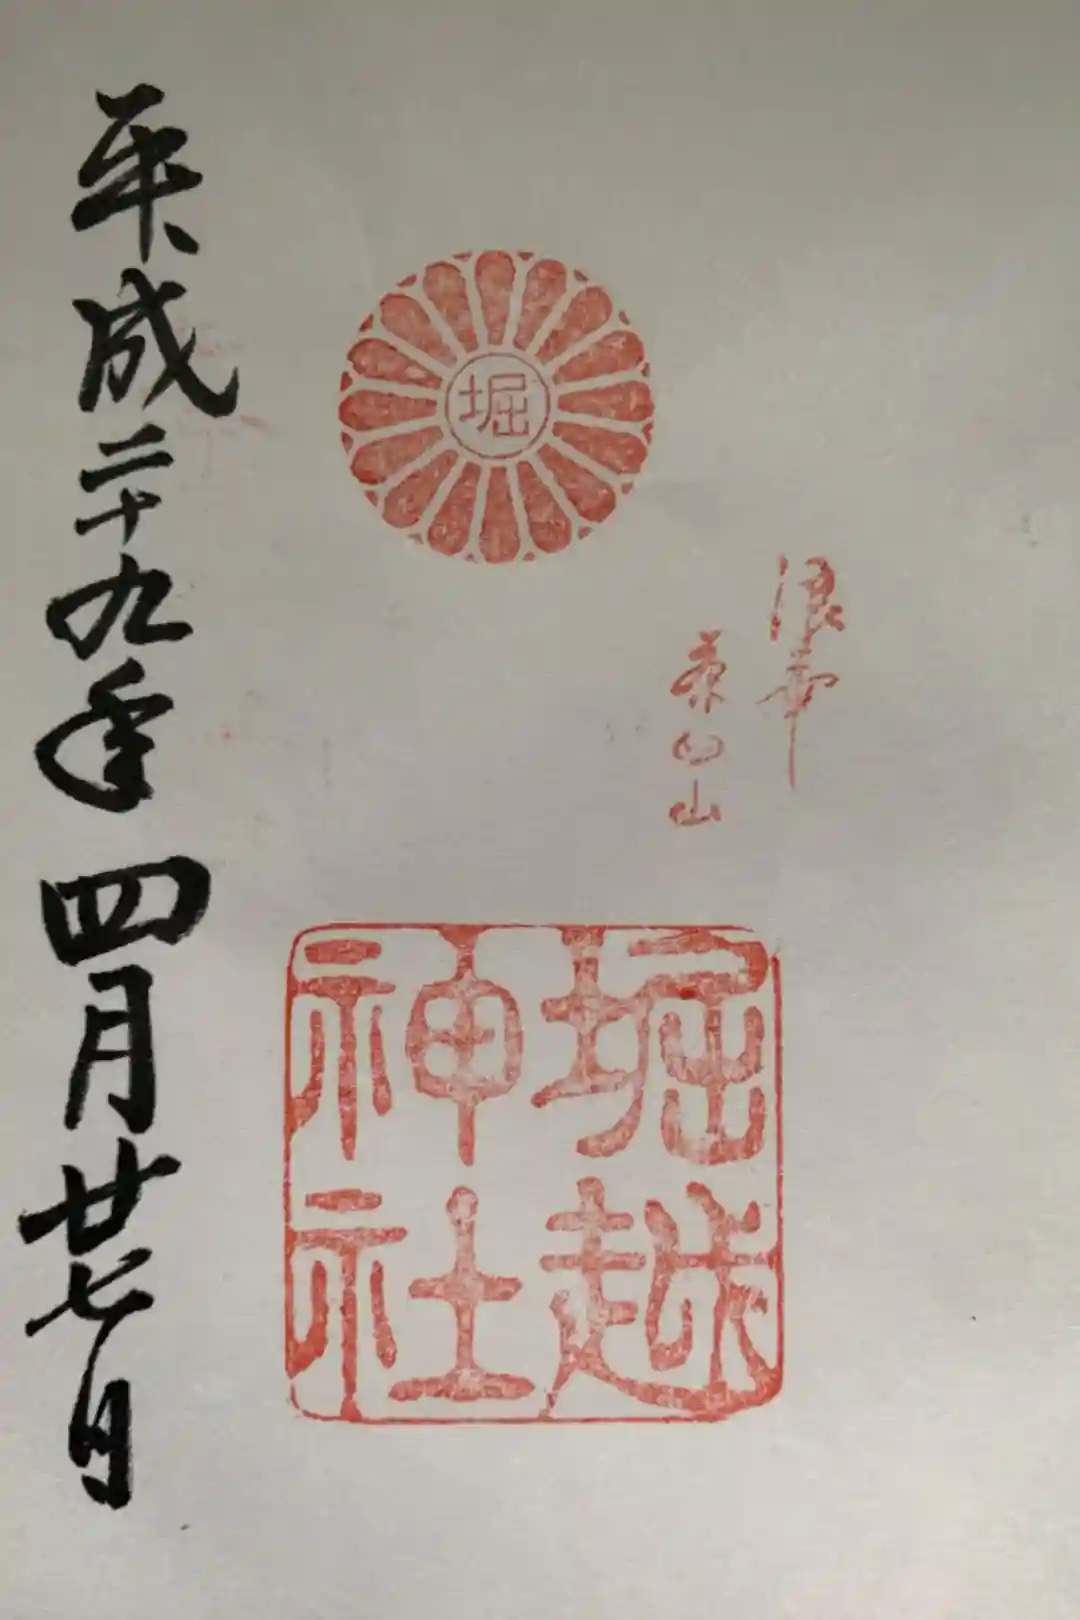 浪華
茶臼山
堀
堀越
神社
平成二十九年四月廿七日